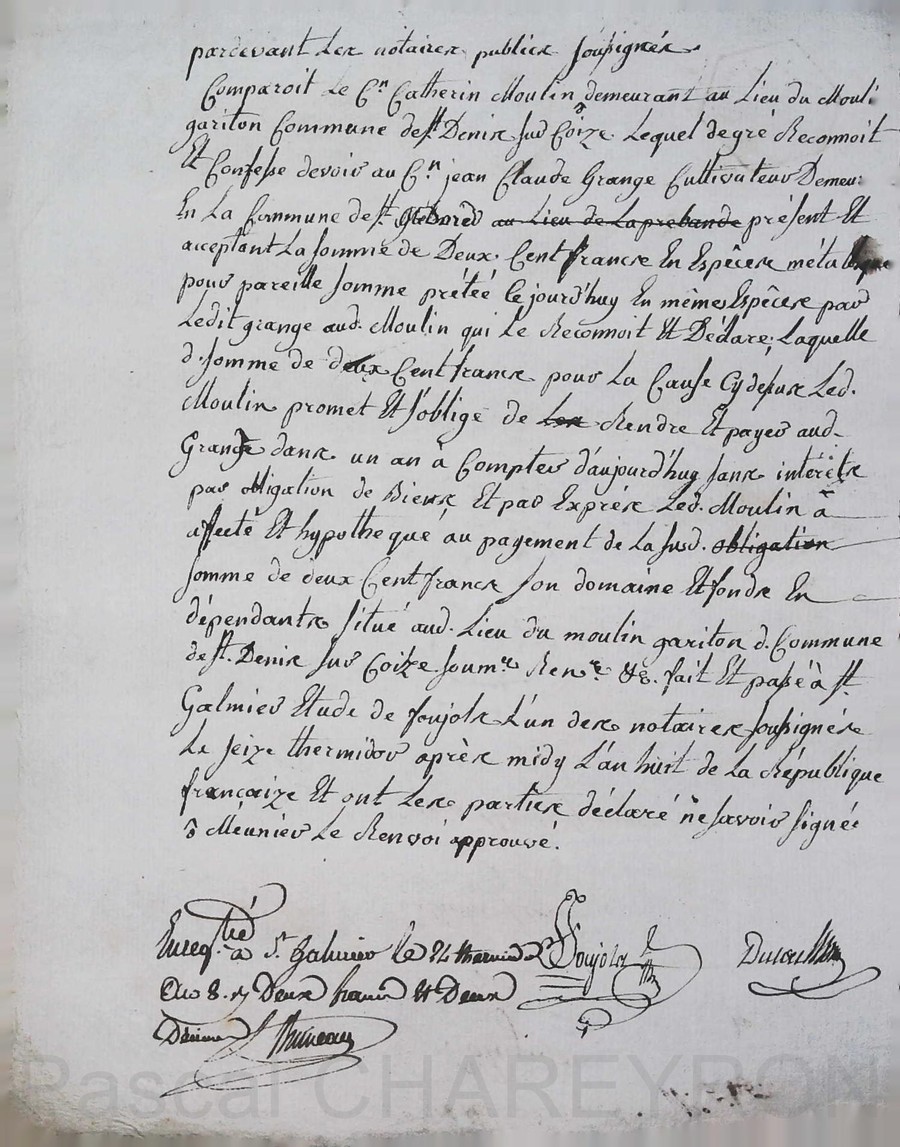 pardevant les notaires publics soussignés
Comparoit le C.n Catherin Moulin demeurant au Lieu du Mouli
gariton Commune de st Denis sur Coize Lequel de gré Reconnoit
Et Confesse devoir au C.n jean Claude Grange Cultivateur Demeu:
En La Commune de st. au Lieu de Laprebande présent Et
acceptant La somme de Deux Cent francs En Espêces métalique
pour pareille somme prétéé Ce jourd'huy En mêmes Espêces par
Ledit grange aud. Moulin qui Le Reconnoit Et Déclare; Laquelle
d. somme de deux Cent francs pour La Cause Cy depus Led.
Moulin promet Et s'oblige de Les Rendre Et payer aud.
Grange dans un an à Compter d'aujourd'huy sans intérêts
par obligation de Biens Et par Exprés Led. Moulin à
affecté Et hypothequé au payement de La susd. obligation
somme de deux Cent francs son domaine Et fonds En
dépendants situé aud. Lieu du moulin gariton d. Commune
de st. Denis sur Coize soum.n Ren.n &c. fait Et passé à st
Galmier Etude de foujols L'un des notaires soussignés
Le seize thermidor après midy L'an huit de La République
françaize Et ont Les parties déclaré ne savoir signée
Meunier Le Renvoi approuvé.
Enregtré à St. Galmier le 24 thermidor
an 8. Deux francs et Deux
Décimes
foujols
Pascal CHAREYRON